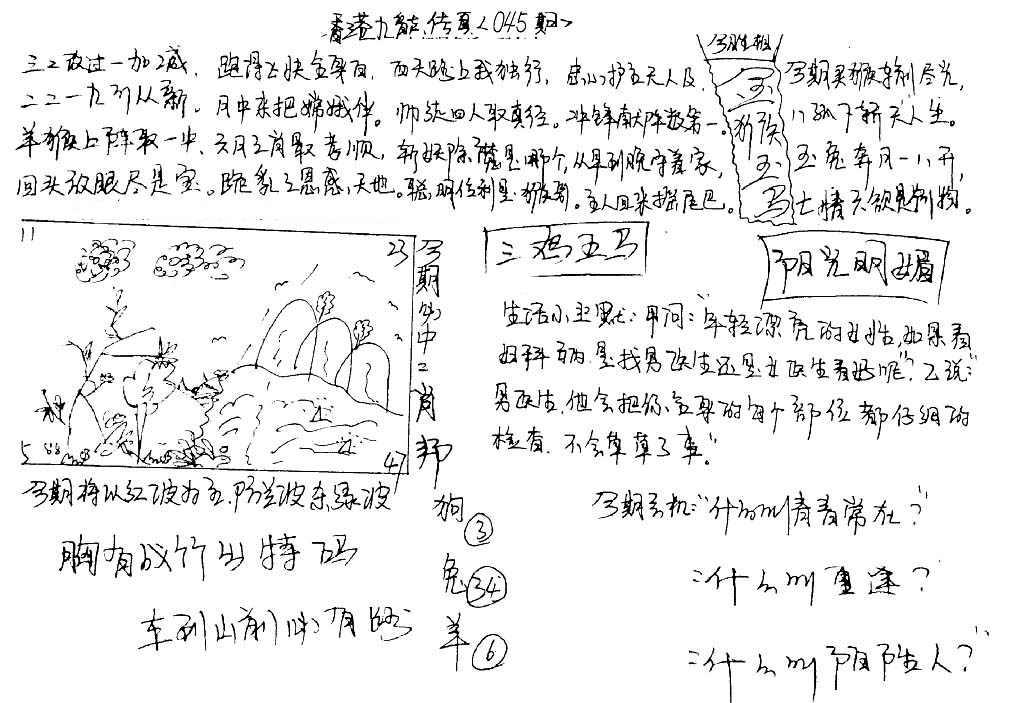 香港九龍传真<045期>
三二放过一加2减，跑得太快全身白，西天路上我独行，忠心护主天人及，
二二一九引从新。月中来把嫦娥伴。师徒四人取真经。冲锋献阵数第一。
羊猴上阵取一中，六月三肖最孝顺，斩妖除魔是哪个，从早到晚守着家，
回头放眼尽是宝。跪乳之恩感天地。聪明伶利是猴哥。主人回来摇尾巴。
今胜相
金猴玉马
今期买猴转别尽光，
八孤下斩天人生。
玉兔奔月一八开，
七情六欲是别物。
11
23
5
47
今期必中二肖邦
三鸡五马
阳光明媚
生活小幽默：甲问：“年轻漂亮的女性，如果看
妇科病，是找男医生还是女医生看好呢”？乙说：“
男医生，他会把你全身的每个部位都仔细的
检查，不会草草了事。”
今期将以红波为主，防兰波杀绿波
狗 3
兔 34
羊 6
胸有成竹出特码
车到山前必有路
今期玄机：“什么叫青春常在？”
：什么叫重逢？
：什么叫阴阳人？”